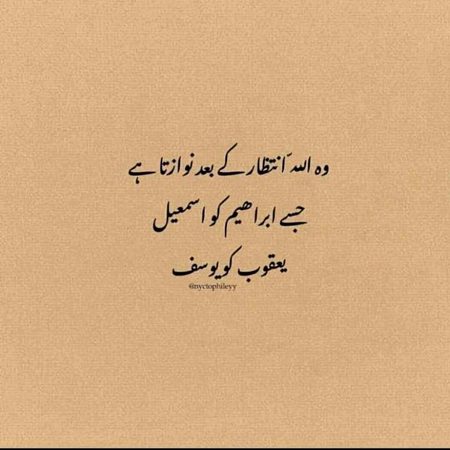 وہ اللہّ انتظار کے بعد نوازتا ہے
جسے ابراھیم کو اسمعیل
یعقوب کو یوسف
@nyctophileyy